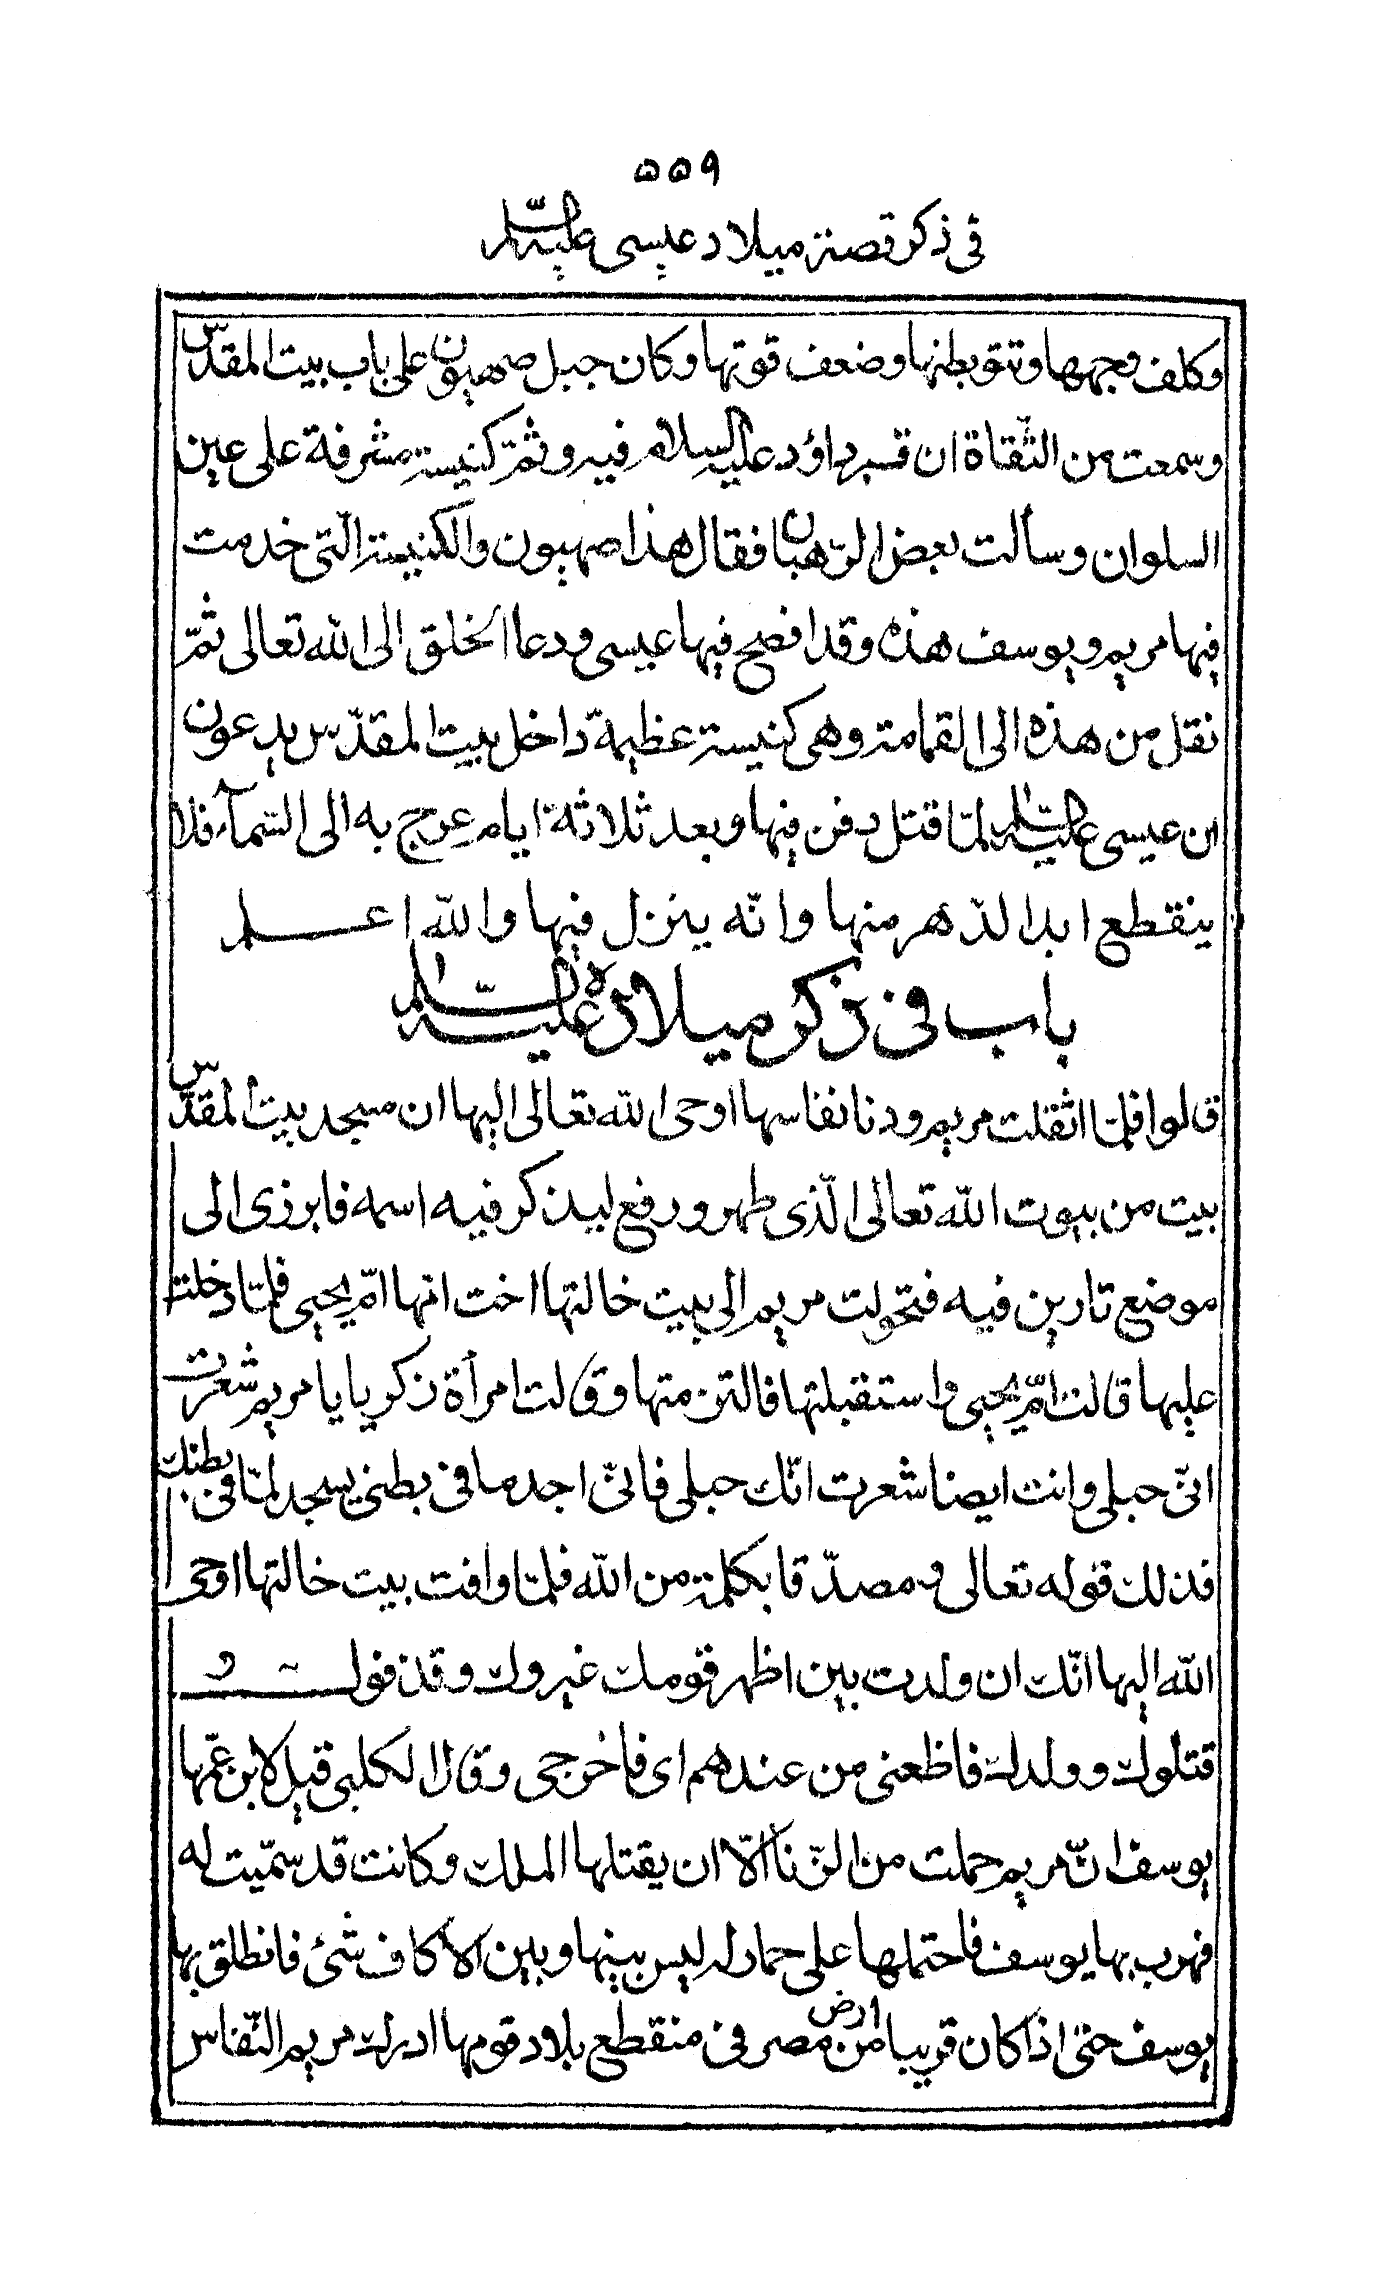 ۵۵۹
في ذكر قصة ميلاد عيسى عليه السلام
وكلف وجهها ونتو بطنها وضعف قوتها وكان جبل صهيون على باب بيت المقدّس
وسمعت من الثّقاة ان قبر داؤد عليه السلام فيه وثمّ كنيسة مشرفة على عين
السلوان وسألت بعض الرّهبان فقال هذا صهيون والكنيسة الّتي خدمت
فيها مريم ويوسف هذه وقد افصح فيها عيسى ودعا الخلق الى الله تعالى ثمّ
نقل من هذه الى القمامة وهي كنيسة عظيمة داخل بيت المقدّس يدعون
ان عيسى عليه السّلام لمّا قتل دفن فيها وبعد ثلاثة ايام عرج به الى السّمآء فلا
ينقطع ابد الدّهر منها وانّه ينزل فيها والله اعلم
باب في ذكر ميلاده عليه السّلام
قالوا فلمّا اثقلت مريم ودنا نفاسها اوحى الله تعالى اليها ان مسجد بيت المقدّس
بيت من بيوت الله تعالى الّذي طهر ورفع ليذكر فيه اسمه فابرزي الى
موضع تارين فيه فتحولت مريم الى بيت خالتها اخت امّها امّ يحيى فلمّا دخلت
عليها قالت امّ يحيى واستقبلتها فالتزمتها وقالت امرأة زكريا يا مريم شعرت
انّي حبلى وانت ايضا شعرت انّك حبلى فانّي اجد ما في بطني يسجد لمّا في بطنك
فذلك قوله تعالى ومصدّقا بكلمة من الله فلمّا وافت بيت خالتها اوحى
الله اليها انّك ان ولدت بين اظهر قومك غيروك وقذفوك و
قتلوك وولدك فاظعني من عندهم اي فاخرجي وقال الكلبي قيل لابن عمّها
يوسف انّ مريم حملت من الزّنا الّا ان يقتلها الملك وكانت قد سمّيت له
فهرب بها يوسف فاحتملها على حمار له ليس بينها وبين الأكاف شئ فانطلق بها
يوسف حتى اذا كان قريبا من ارض مصر في منقطع بلاد قومها ادرك مريم النّفاس